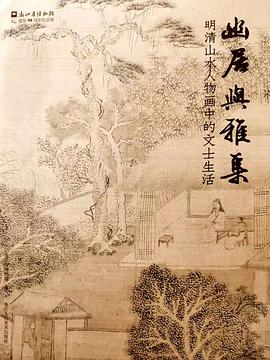 浙江省博物館
幽居與雅集
明清山水人物画中的文士生活